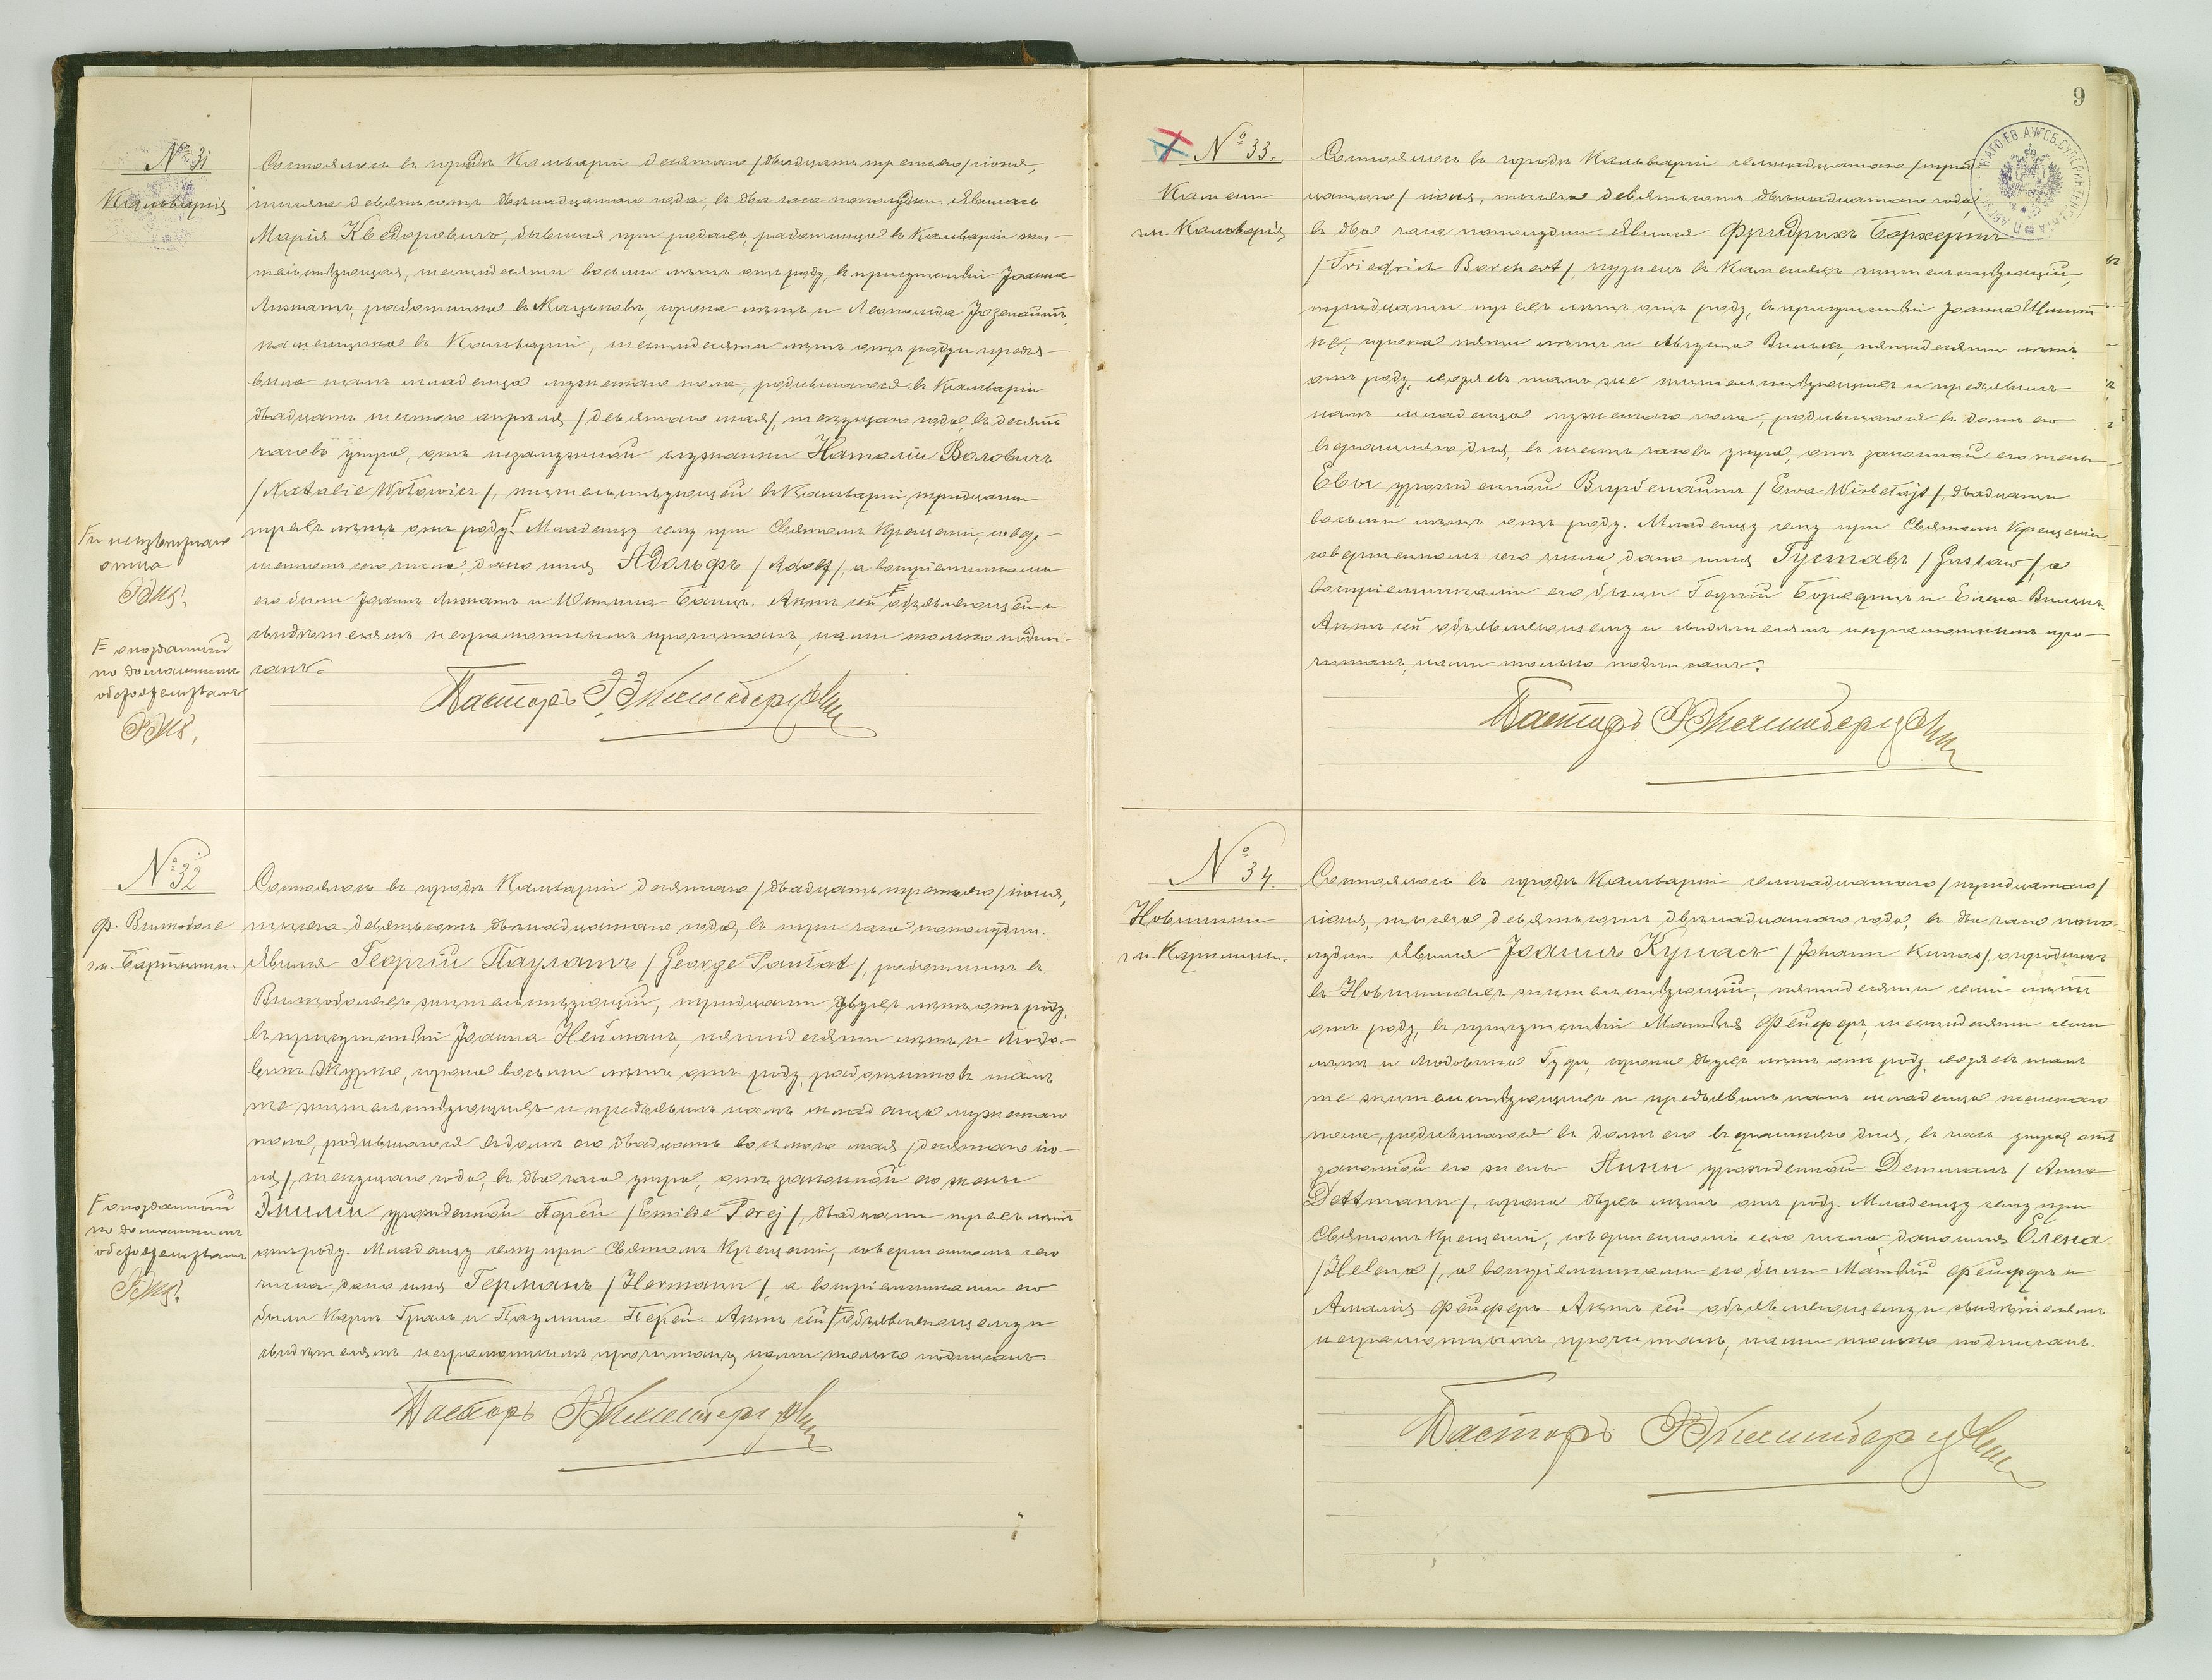 № 31
Кальварія
Состоялось въ городѣ Кальваріи десятаго /двадцать третьяго/ іюня,
тысяча девятьсотъ двѣнадцатаго года, въ два часа пополудни. Явилась
Марія Кведоровичъ, бывшая при родахъ, работница въ Кальваріи жи-
тельствующая, шестидесяти восьми лѣтъ отъ роду, въ присутствіи Іоанна
работника въ сорока лѣтъ и Леопольда
въ Кальваріи, шестидесяти лѣтъ отъ роду и предъя-
вила намъ младенца мужескаго пола, родившагося въ Кальваріи
двадцать шестого апрѣля /девятаго мая/, текущаго года, въ десять
часовъ утра, отъ незамужней Наталіи Воловичъ
/Natalie Wołowicz/, жительствующей въ Кальваріи, тридцати
трехъ лѣтъ отъ роду. Младенцу сему при Святомъ Крещеніи, совер-
шенномъ сего числа, дано имя Адольфъ /Adolf/, а воспріемниками
его были Іоаннъ и Актъ сей объявляющей и
свидѣтелямъ неграмотнымъ прочитанъ, нами только подпи-
санъ.
F и неизвѣстнаго
отца
F опозданный
по домашнимъ
обстоятельствамъ
Пасторъ
№ 32
ф. Витоболе
гм.
Состоялось въ городѣ Кальваріи десятаго /двадцать третьяго/ іюня,
тысяча девятьсотъ двѣнадцатаго года, въ три часа пополудни.
Явился Георгій Паулатъ /George Paulat/, работникъ въ
жительствующій, тридцати двухъ лѣтъ отъ роду,
въ присутствіи Іоанна Нейманъ, пятидесяти лѣтъ и Людо-
вика сорока восьми лѣтъ отъ роду, работниковъ тамъ
же жительствующихъ и предъявилъ намъ младенца мужескаго
пола, родившагося въ домѣ его двадцать восьмого мая /десятаго ію-
ня/, текущаго года, въ два часа утра, отъ законной его жены
Эмиліи урожденной Порей /Emilie Porej/, двадцати трехъ лѣтъ
отъ роду. Младенцу сему при Святомъ Крещеніи, совершенномъ сего
числа, дано имя Германъ /Hermann/, а воспріемниками его
были Карлъ и Паулина Порей. Актъ сей F объявляющему и
свидѣтелямъ неграмотнымъ прочитанъ, нами только подписанъ.
F опозданный
по домашнимъ
обстоятельствамъ
Пасторъ
9
№ 33.
Камени
гм. Кальварія
Состоялось въ городѣ Кальваріи семнадцатаго /трид-
цатаго/ іюня, тысяча девятьсотъ двѣнадцатаго года,
въ два часа пополудни явился Фридрихъ Борхертъ
/Friedrich Borchert/, кузнецъ въ жительствующій,
тридцати трехъ лѣтъ отъ роду, въ присутствіи Іоанна
сорока пяти лѣтъ и Августа пятидесяти лѣтъ
отъ роду, тамъ же жительствующихъ и предъявилъ
намъ младенца мужескаго пола, родившагося въ домѣ его
вчерашняго дня, въ шесть часовъ утра, отъ законной его жены
Евы урожденной Вирбелайтъ /Ewa Wirbelajt/, двадцати
восьми лѣтъ отъ роду. Младенцу сему при Святомъ Крещеніи
совершенномъ сего числа, дано имя Густавъ /Gustaw/, а
воспріемниками его были Борхертъ и Елена
Актъ сей объявляющему и свидѣтелямъ неграмотнымъ про-
читанъ, нами только подписанъ.
Пасторъ
№ 34.
Новинники
гм.
Состоялось въ городѣ Кальваріи семнадцатаго /тридцатаго/
іюня, тысяча девятьсотъ двѣнадцатаго года, въ два часа попо-
лудни. Явился Іоаннъ Кунасъ /Johann Kunas/, огородникъ
въ жительствующій, пятидесяти семи лѣтъ
отъ роду, въ присутствіи Матвѣя Фейферъ, шестидесяти семи
лѣтъ и Людовика сорока двухъ лѣтъ отъ роду, тамъ
же жительствующихъ и предъявилъ намъ младенца женскаго
пола, родившагося въ домѣ его вчерашняго дня, въ часъ утра, отъ
законной его жены Анны урожденной Детманъ /Anna
Dettmann/, сорока двухъ лѣтъ отъ роду. Младенцу сему при
Святомъ Крещеніи, совершенномъ сего числа, дано имя Елена
/Helena/, а воспріемниками его были Матвѣй Фейферъ и
Амалія Фейферъ. Актъ сей объявляющему и свидѣтелямъ
неграмотнымъ прочитанъ, нами только подписанъ.
Пасторъ